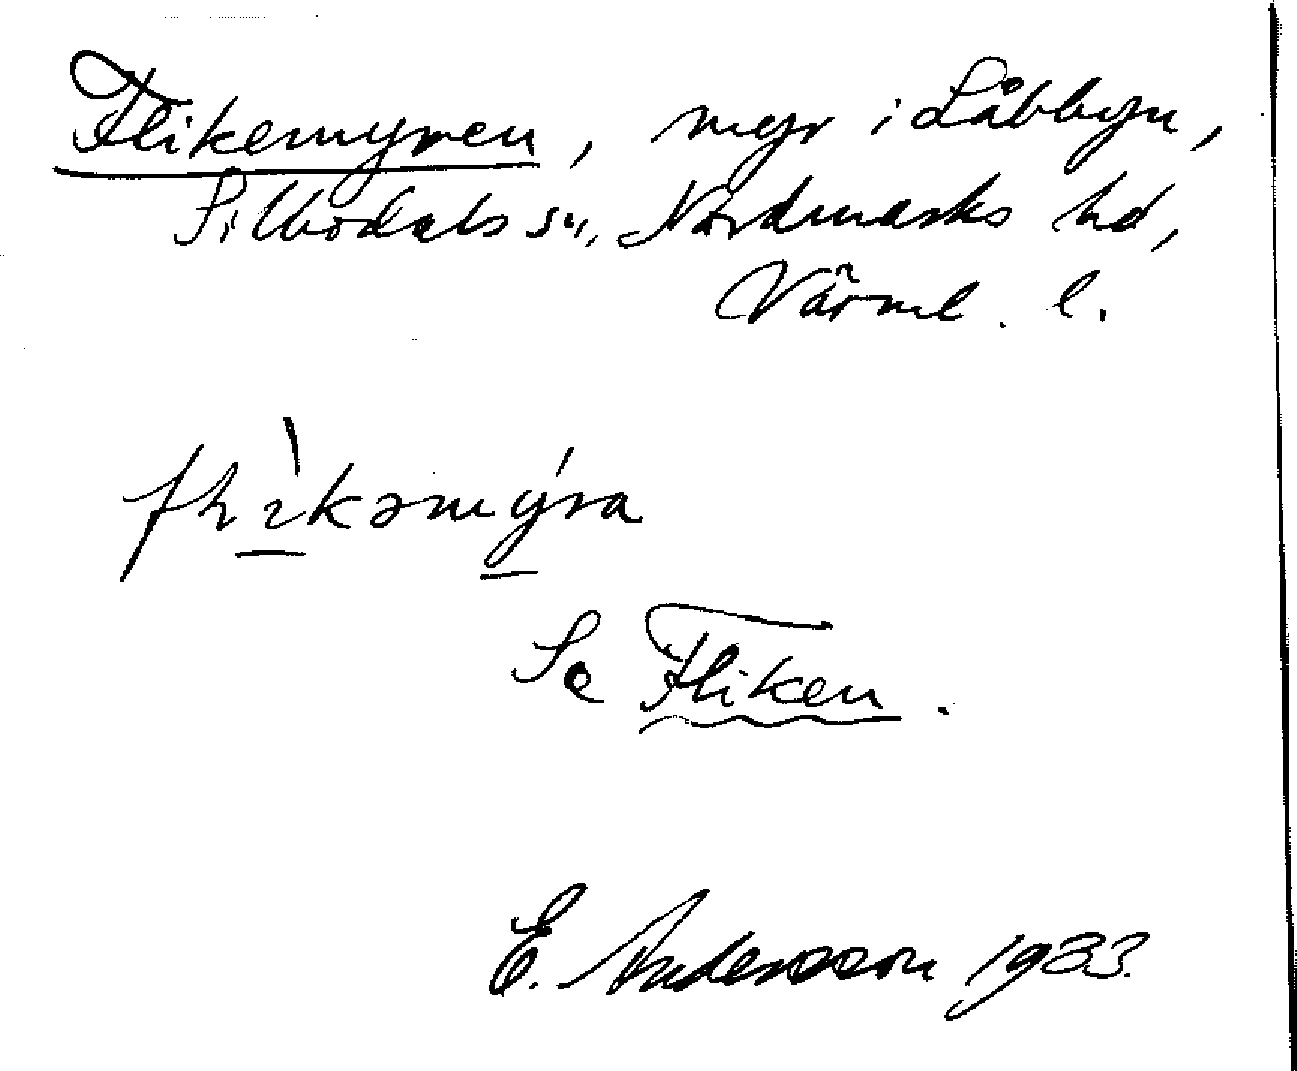 Flikemyren, myr i Låbbyn,
Silbodals sn, Nordmarks hd,
Värml. l.
flìkəmýra
Se Fliken.
E. Andersson 1933.